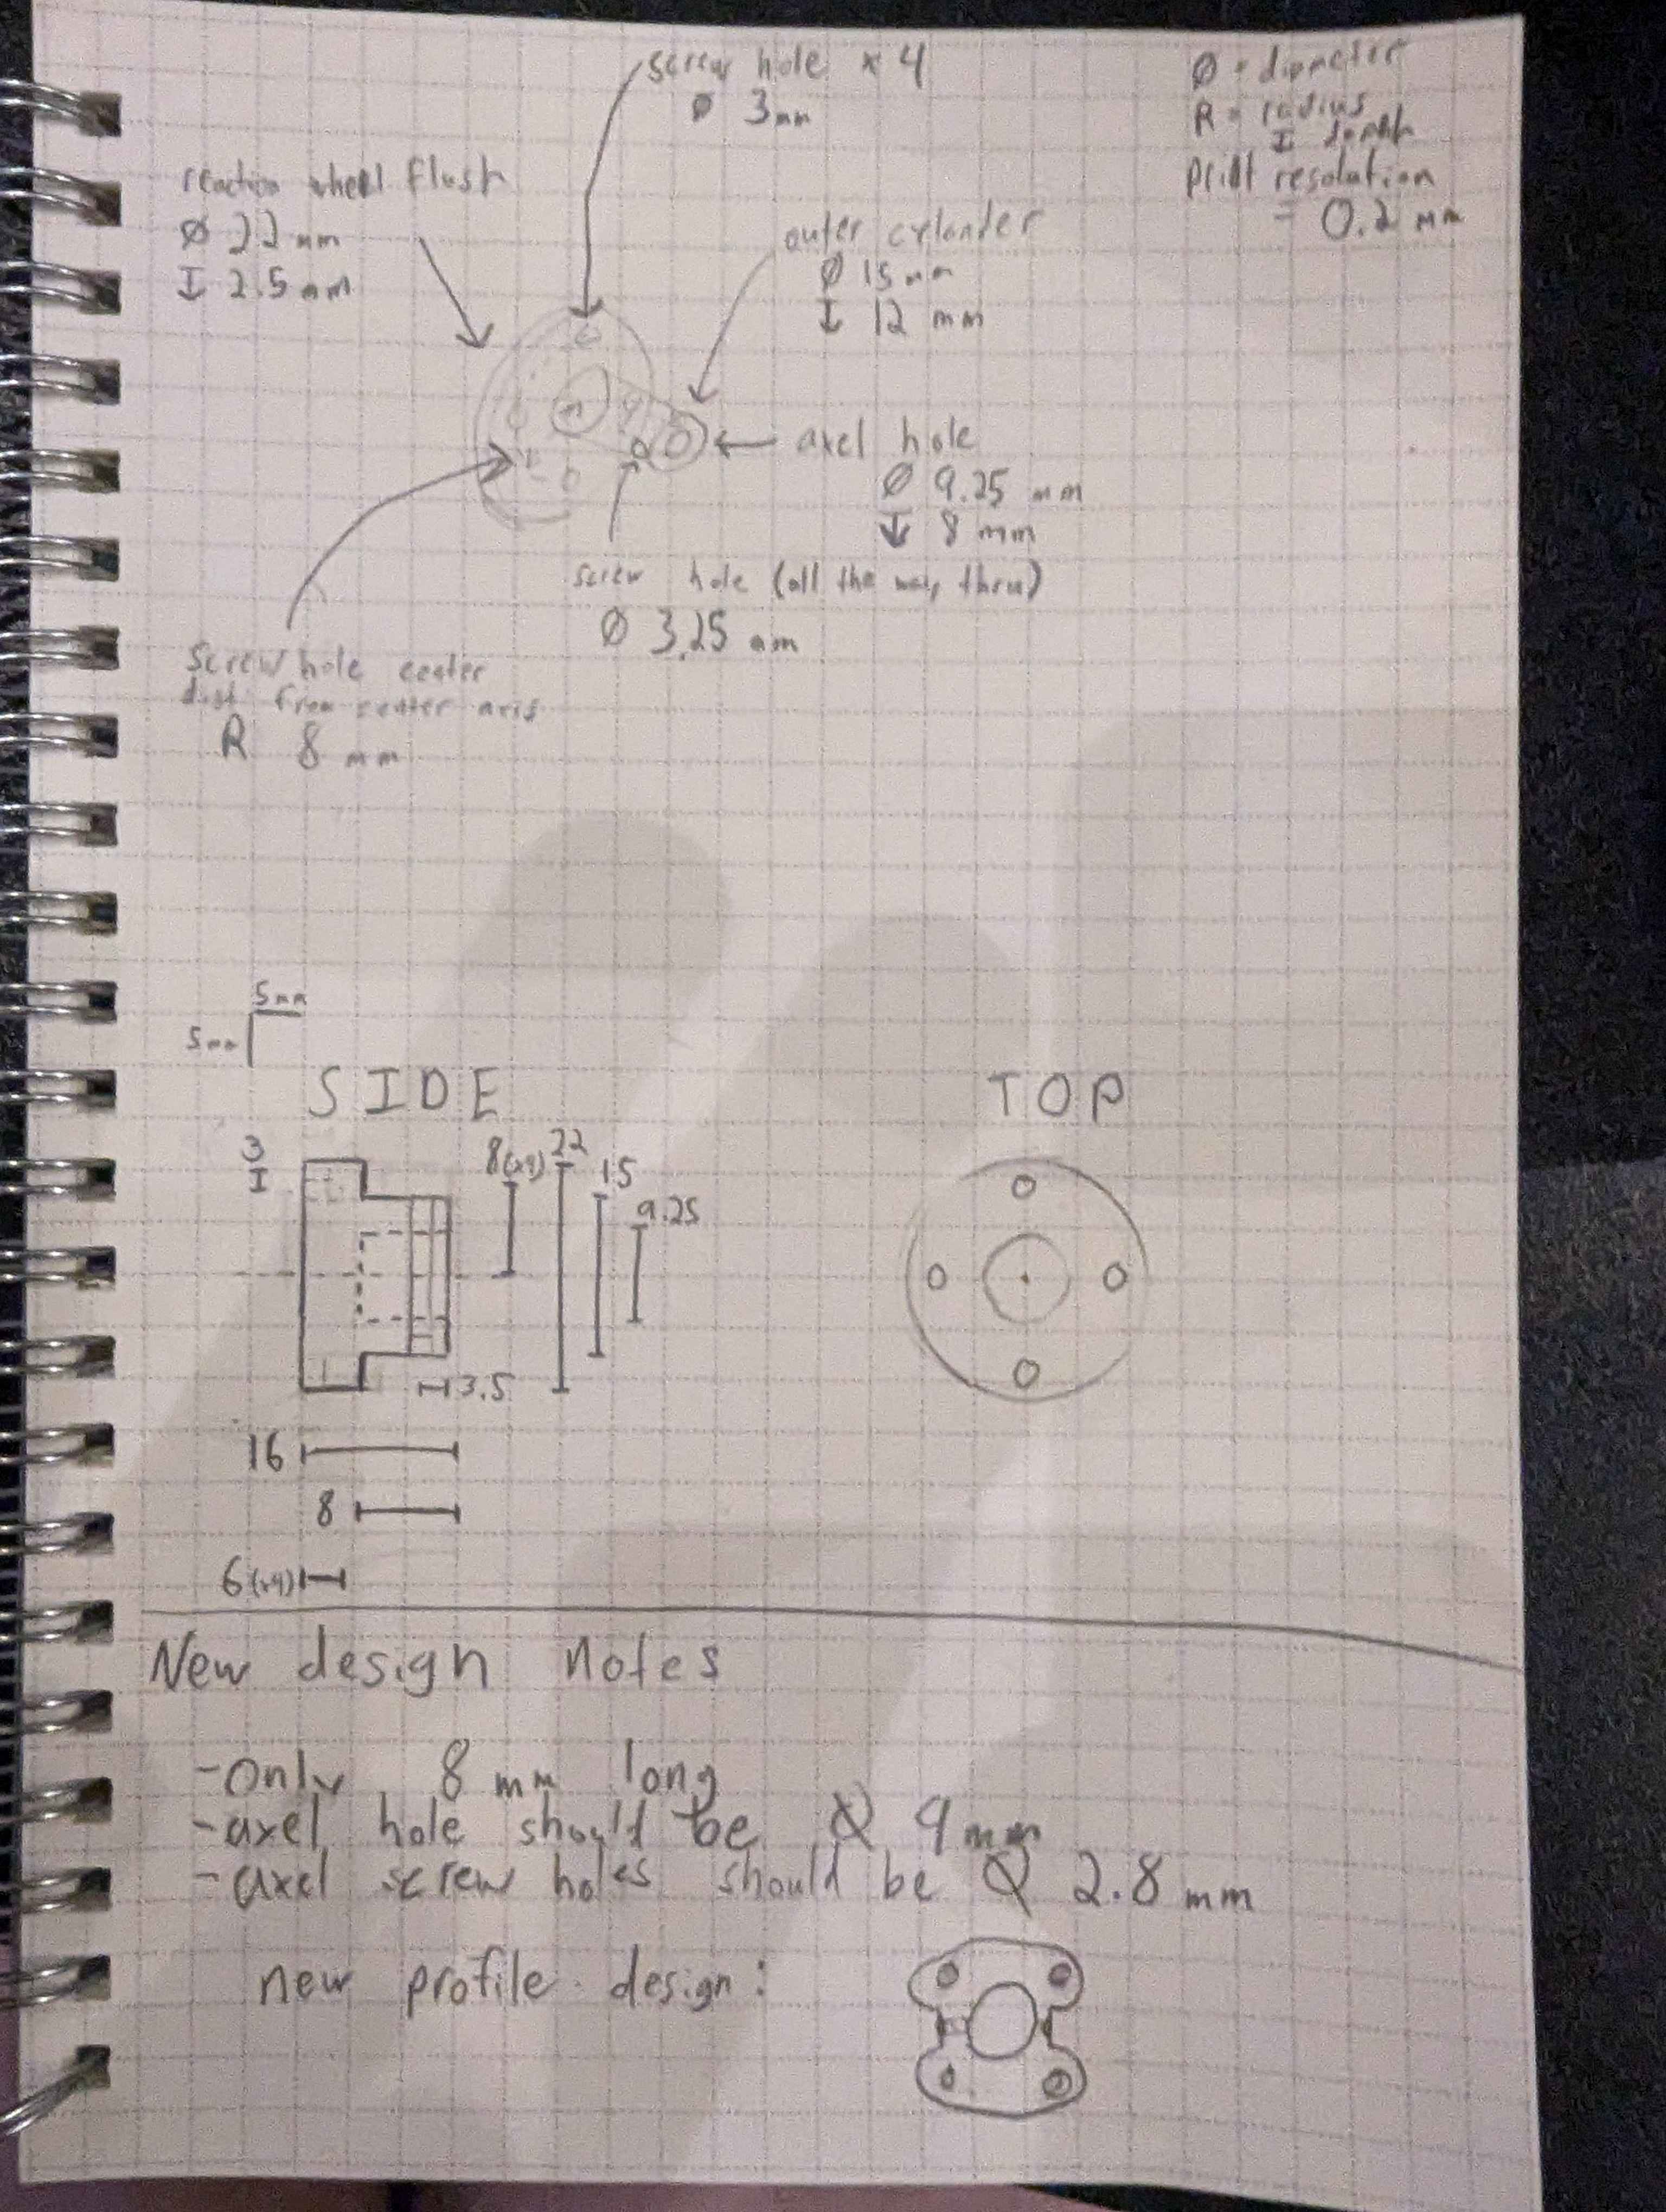 screw hole x 4
Ø 3mm
Ø = diameter
R = radius
I depth
Print resolution
= 0.2 mm
reaction wheel flush
Ø 22 mm
I 2.5 mm
outer cylander
Ø 15 mm
↓ 12 mm
axel hole
Ø 9.25 mm
↓ 8 mm
screw hole (all the way thru)
Ø 3.25 mm
Screw hole center
dist from center axis
R 8 mm
5mm
5mm
SIDE
TOP
3
8(x4)
22
15
9.25
3.5
16
8
6(x4)
New design notes
-only 8 mm long
-axel hole should be Ø 9mm
-axel screw holes should be Ø 2.8 mm
new profile design: